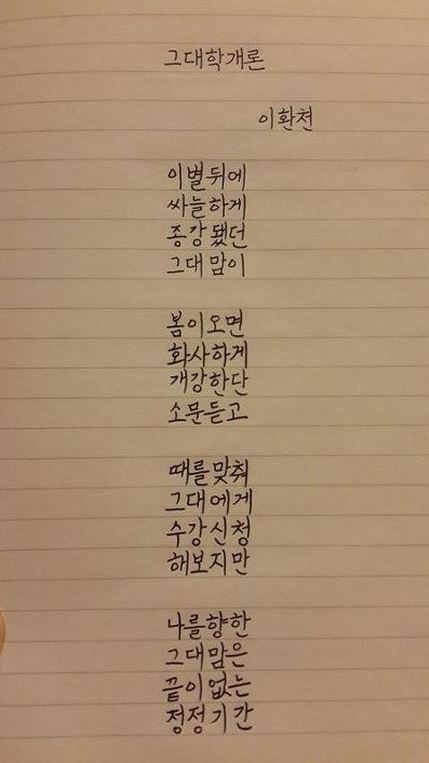 그대학개론
이환천
이별뒤에
싸늘하게
종강됐던
그대맘이
봄이오면
화사하게
개강한단
소문듣고
때를맞춰
그대에게
수강신청
해보지만
나를향한
그대맘은
끝이없는
정정기간